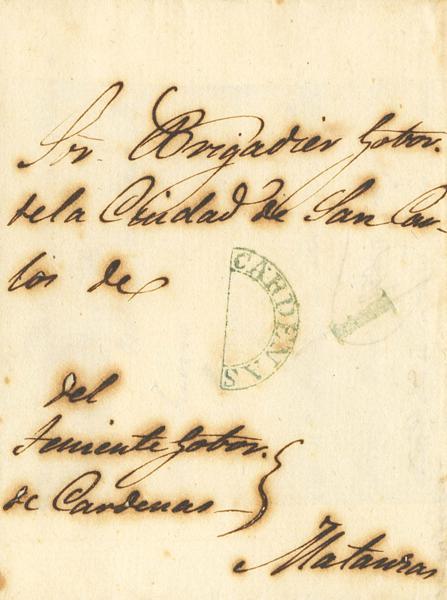 Sor. Brigadier Gobor.
de la Ciudad de San Car-
los de
CARDENAS
1
del
Teniente Gobor.
de Cardenas
Matanzas